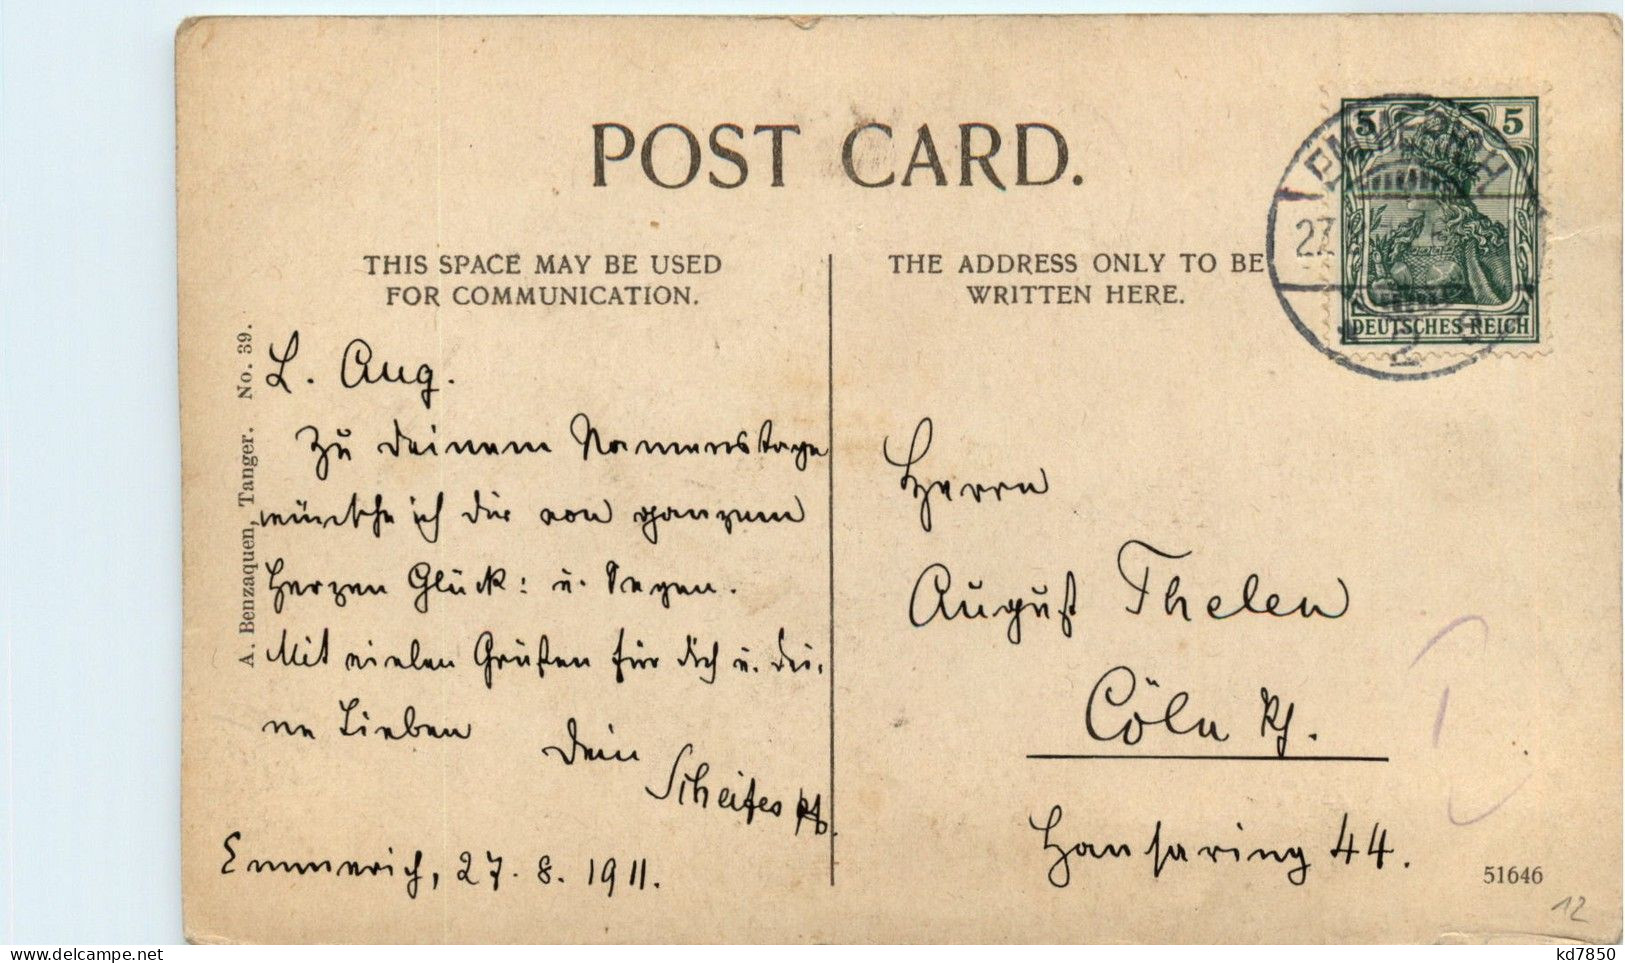 POST CARD.
THIS SPACE MAY BE USED
FOR COMMUNICATION.
THE ADDRESS ONLY TO BE
WRITTEN HERE.
A. Benzaquen, Tanger. No. 39.
L. Aug.
Zu deinem Namenstage
wünsche ich dir von ganzem
Herzen Glück: u. Segen.
Mit vielen Grüßen für dich u. dei-
ne Lieben
Dein
Emmerich, 27. 8. 1911.
5 5
DEUTSCHES REICH
EMMERICH
27
2
Herrn
August Thelen
Cöln Rh.
Hansaring 44.
51646
12
delcampe.net
kd7850